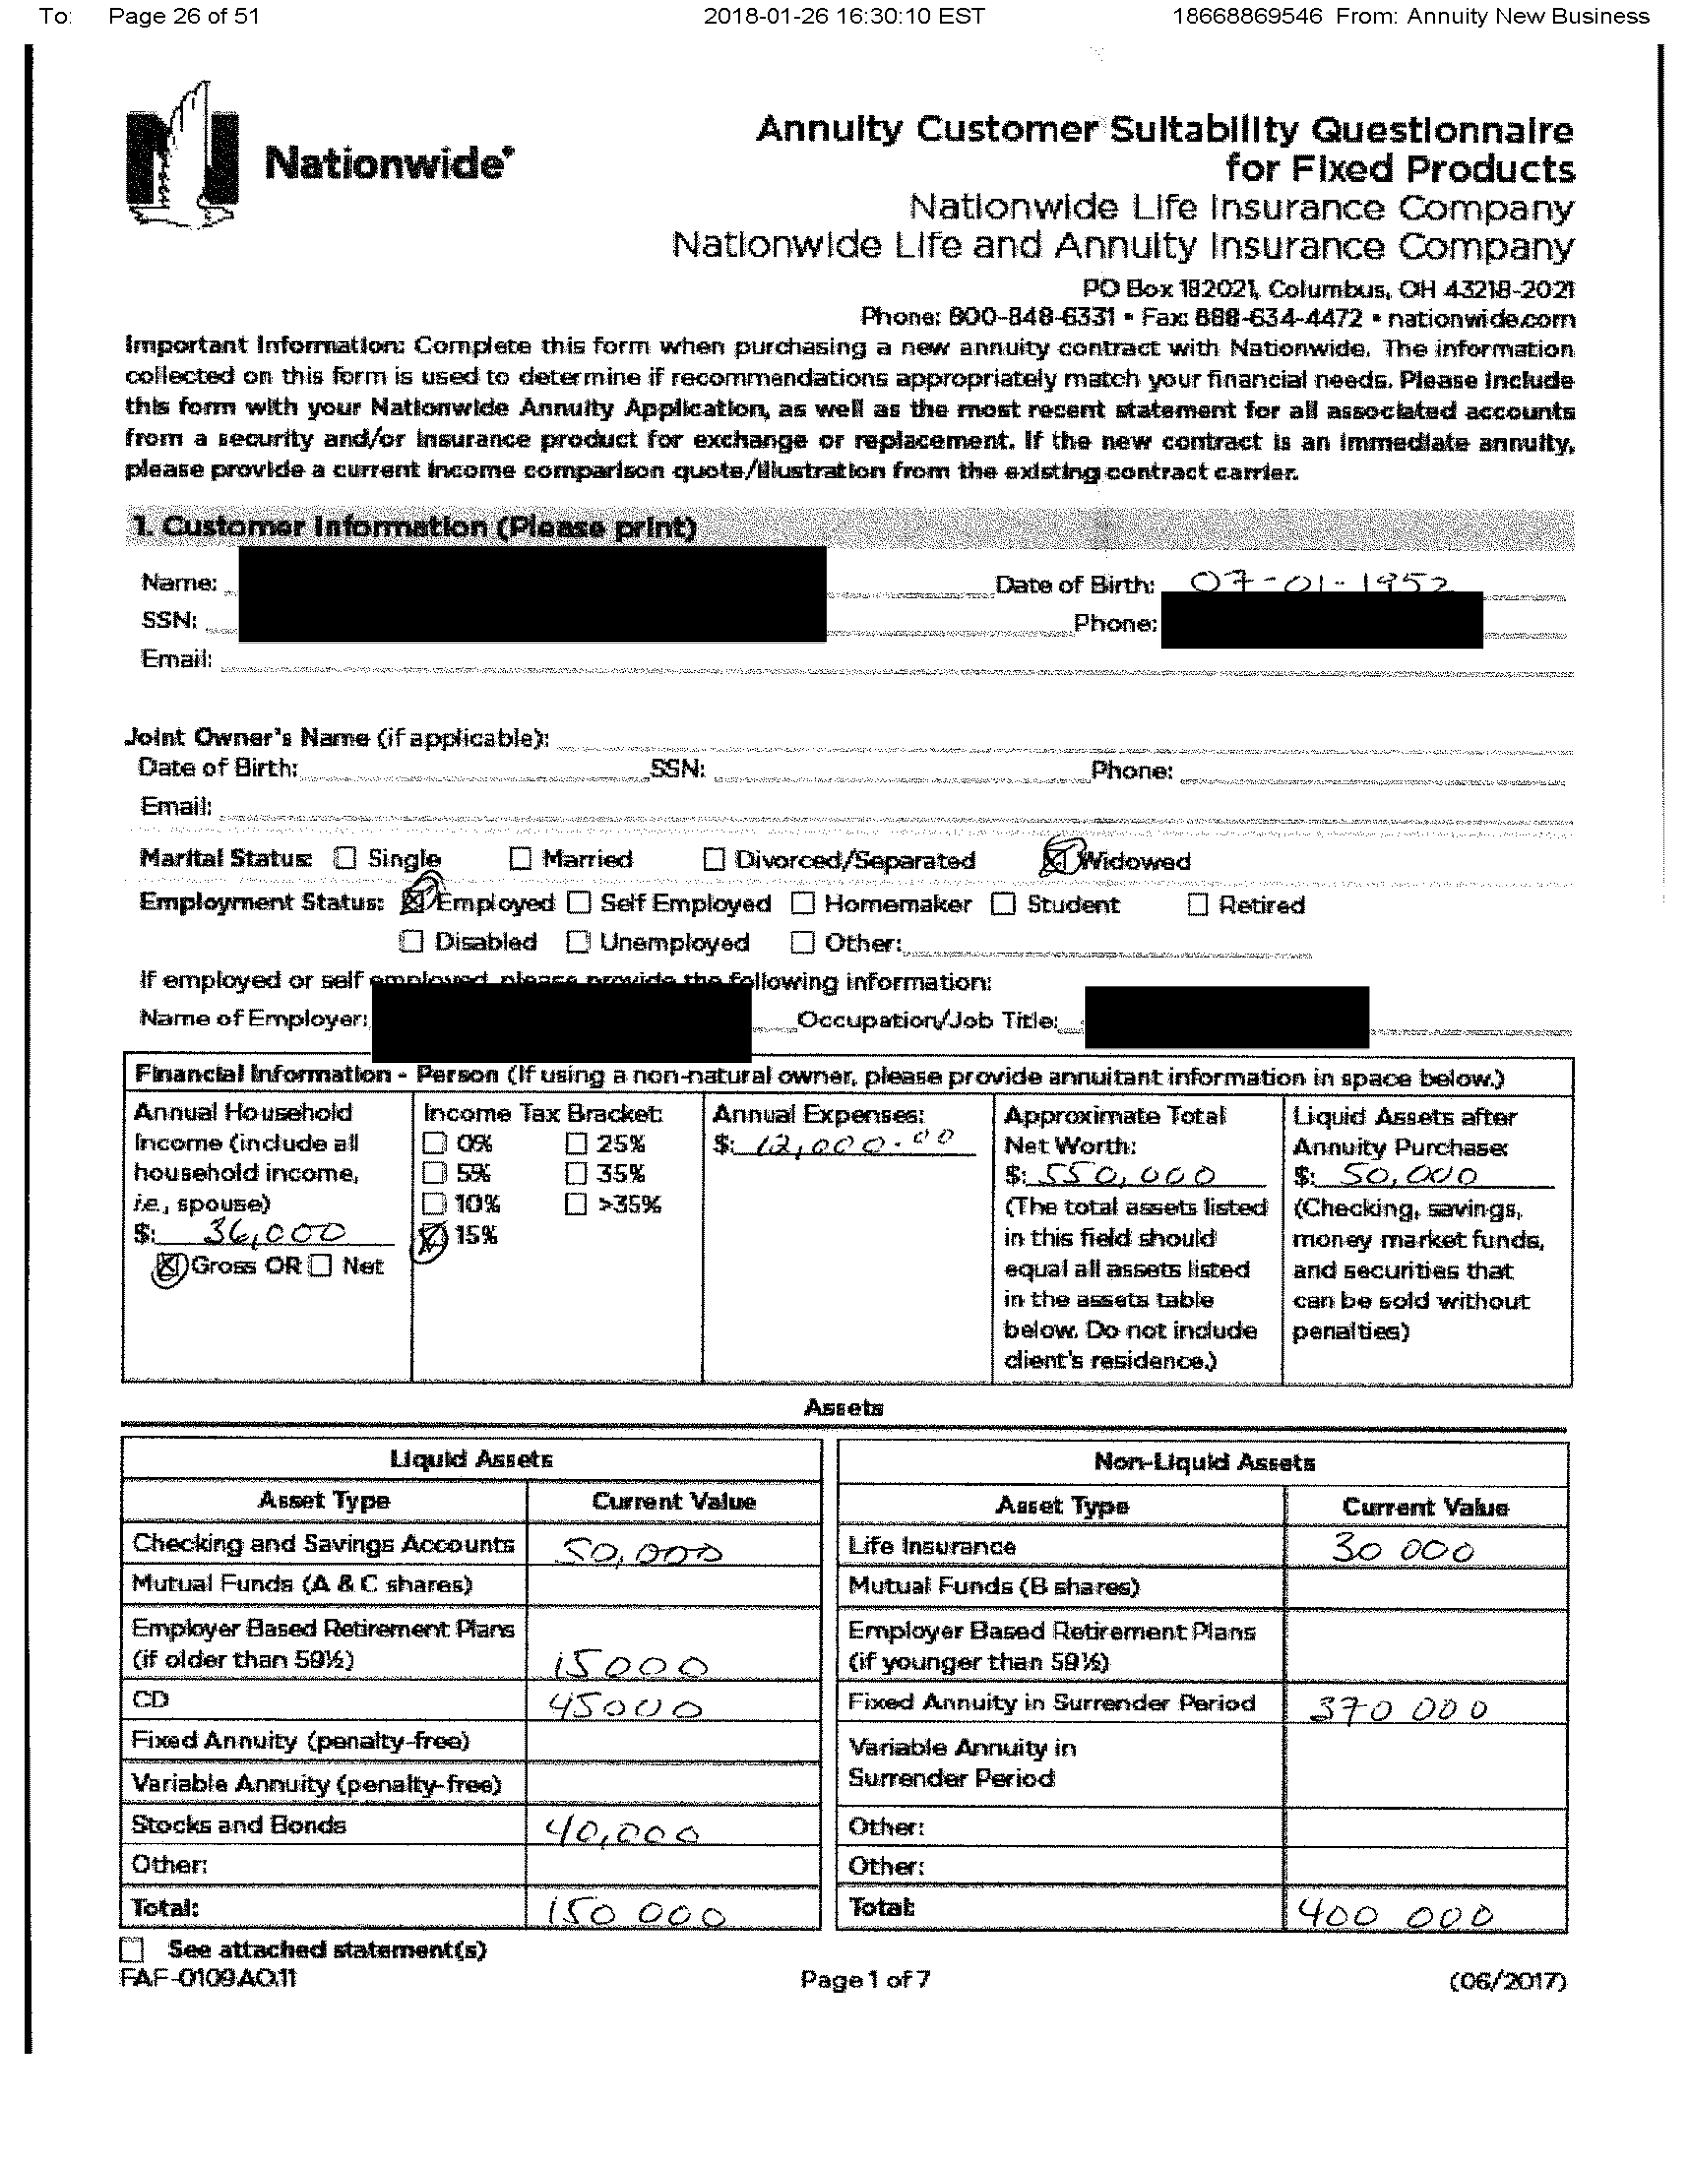 To: Page 26 of 51 2018-01-26 16:30:10 EST 18668869546 From: Annuity New Business
Nationwide®
Annuity Customer Suitability Questionnaire
for Fixed Products
Nationwide Life Insurance Company
Nationwide Life and Annuity Insurance Company
PO Box 182021, Columbus, OH 43218-2021
Phone: 800-848-6331 • Fax: 888-634-4472 • nationwide.com
Important Information: Complete this form when purchasing a new annuity contract with Nationwide. The information
collected on this form is used to determine if recommendations appropriately match your financial needs. Please include
this form with your Nationwide Annuity Application, as well as the most recent statement for all associated accounts
from a security and/or insurance product for exchange or replacement. If the new contract is an immediate annuity,
please provide a current income comparison quote/illustration from the existing contract carrier.
1. Customer Information (Please print)
Name: Date of Birth: 07-01-1952
SSN: Phone:
Email:
Joint Owner's Name (if applicable):
Date of Birth: SSN: Phone:
Email:
Marital Status: Single Married Divorced/Separated Widowed
Employment Status: Employed Self Employed Homemaker Student Retired
Disabled Unemployed Other:
If employed or self employed, please provide the following information:
Name of Employer: Occupation/Job Title:
Financial Information - Person (If using a non-natural owner, please provide annuitant information in space below.)
Annual Household
Income (include all
household income,
i.e., spouse)
$: 36,000
Gross OR Net
Income Tax Bracket:
0% 25%
5% 35%
10% >35%
15%
Annual Expenses:
$: 12,000.00
Approximate Total
Net Worth:
$: 550,000
(The total assets listed
in this field should
equal all assets listed
in the assets table
below. Do not include
client's residence.)
Liquid Assets after
Annuity Purchase:
$: 50,000
(Checking, savings,
money market funds,
and securities that
can be sold without
penalties)
Assets
Liquid Assets
Asset Type Current Value
Checking and Savings Accounts 50,000
Mutual Funds (A & C shares)
Employer Based Retirement Plans
(if older than 59½) 15000
CD 45000
Fixed Annuity (penalty-free)
Variable Annuity (penalty-free)
Stocks and Bonds 40,000
Other:
Total: 150 000
Non-Liquid Assets
Asset Type Current Value
Life Insurance 30 000
Mutual Funds (B shares)
Employer Based Retirement Plans
(if younger than 59½)
Fixed Annuity in Surrender Period 370 000
Variable Annuity in
Surrender Period
Other:
Other:
Total: 400 000
See attached statement(s)
FAF-0109AO.11 Page 1 of 7 (06/2017)